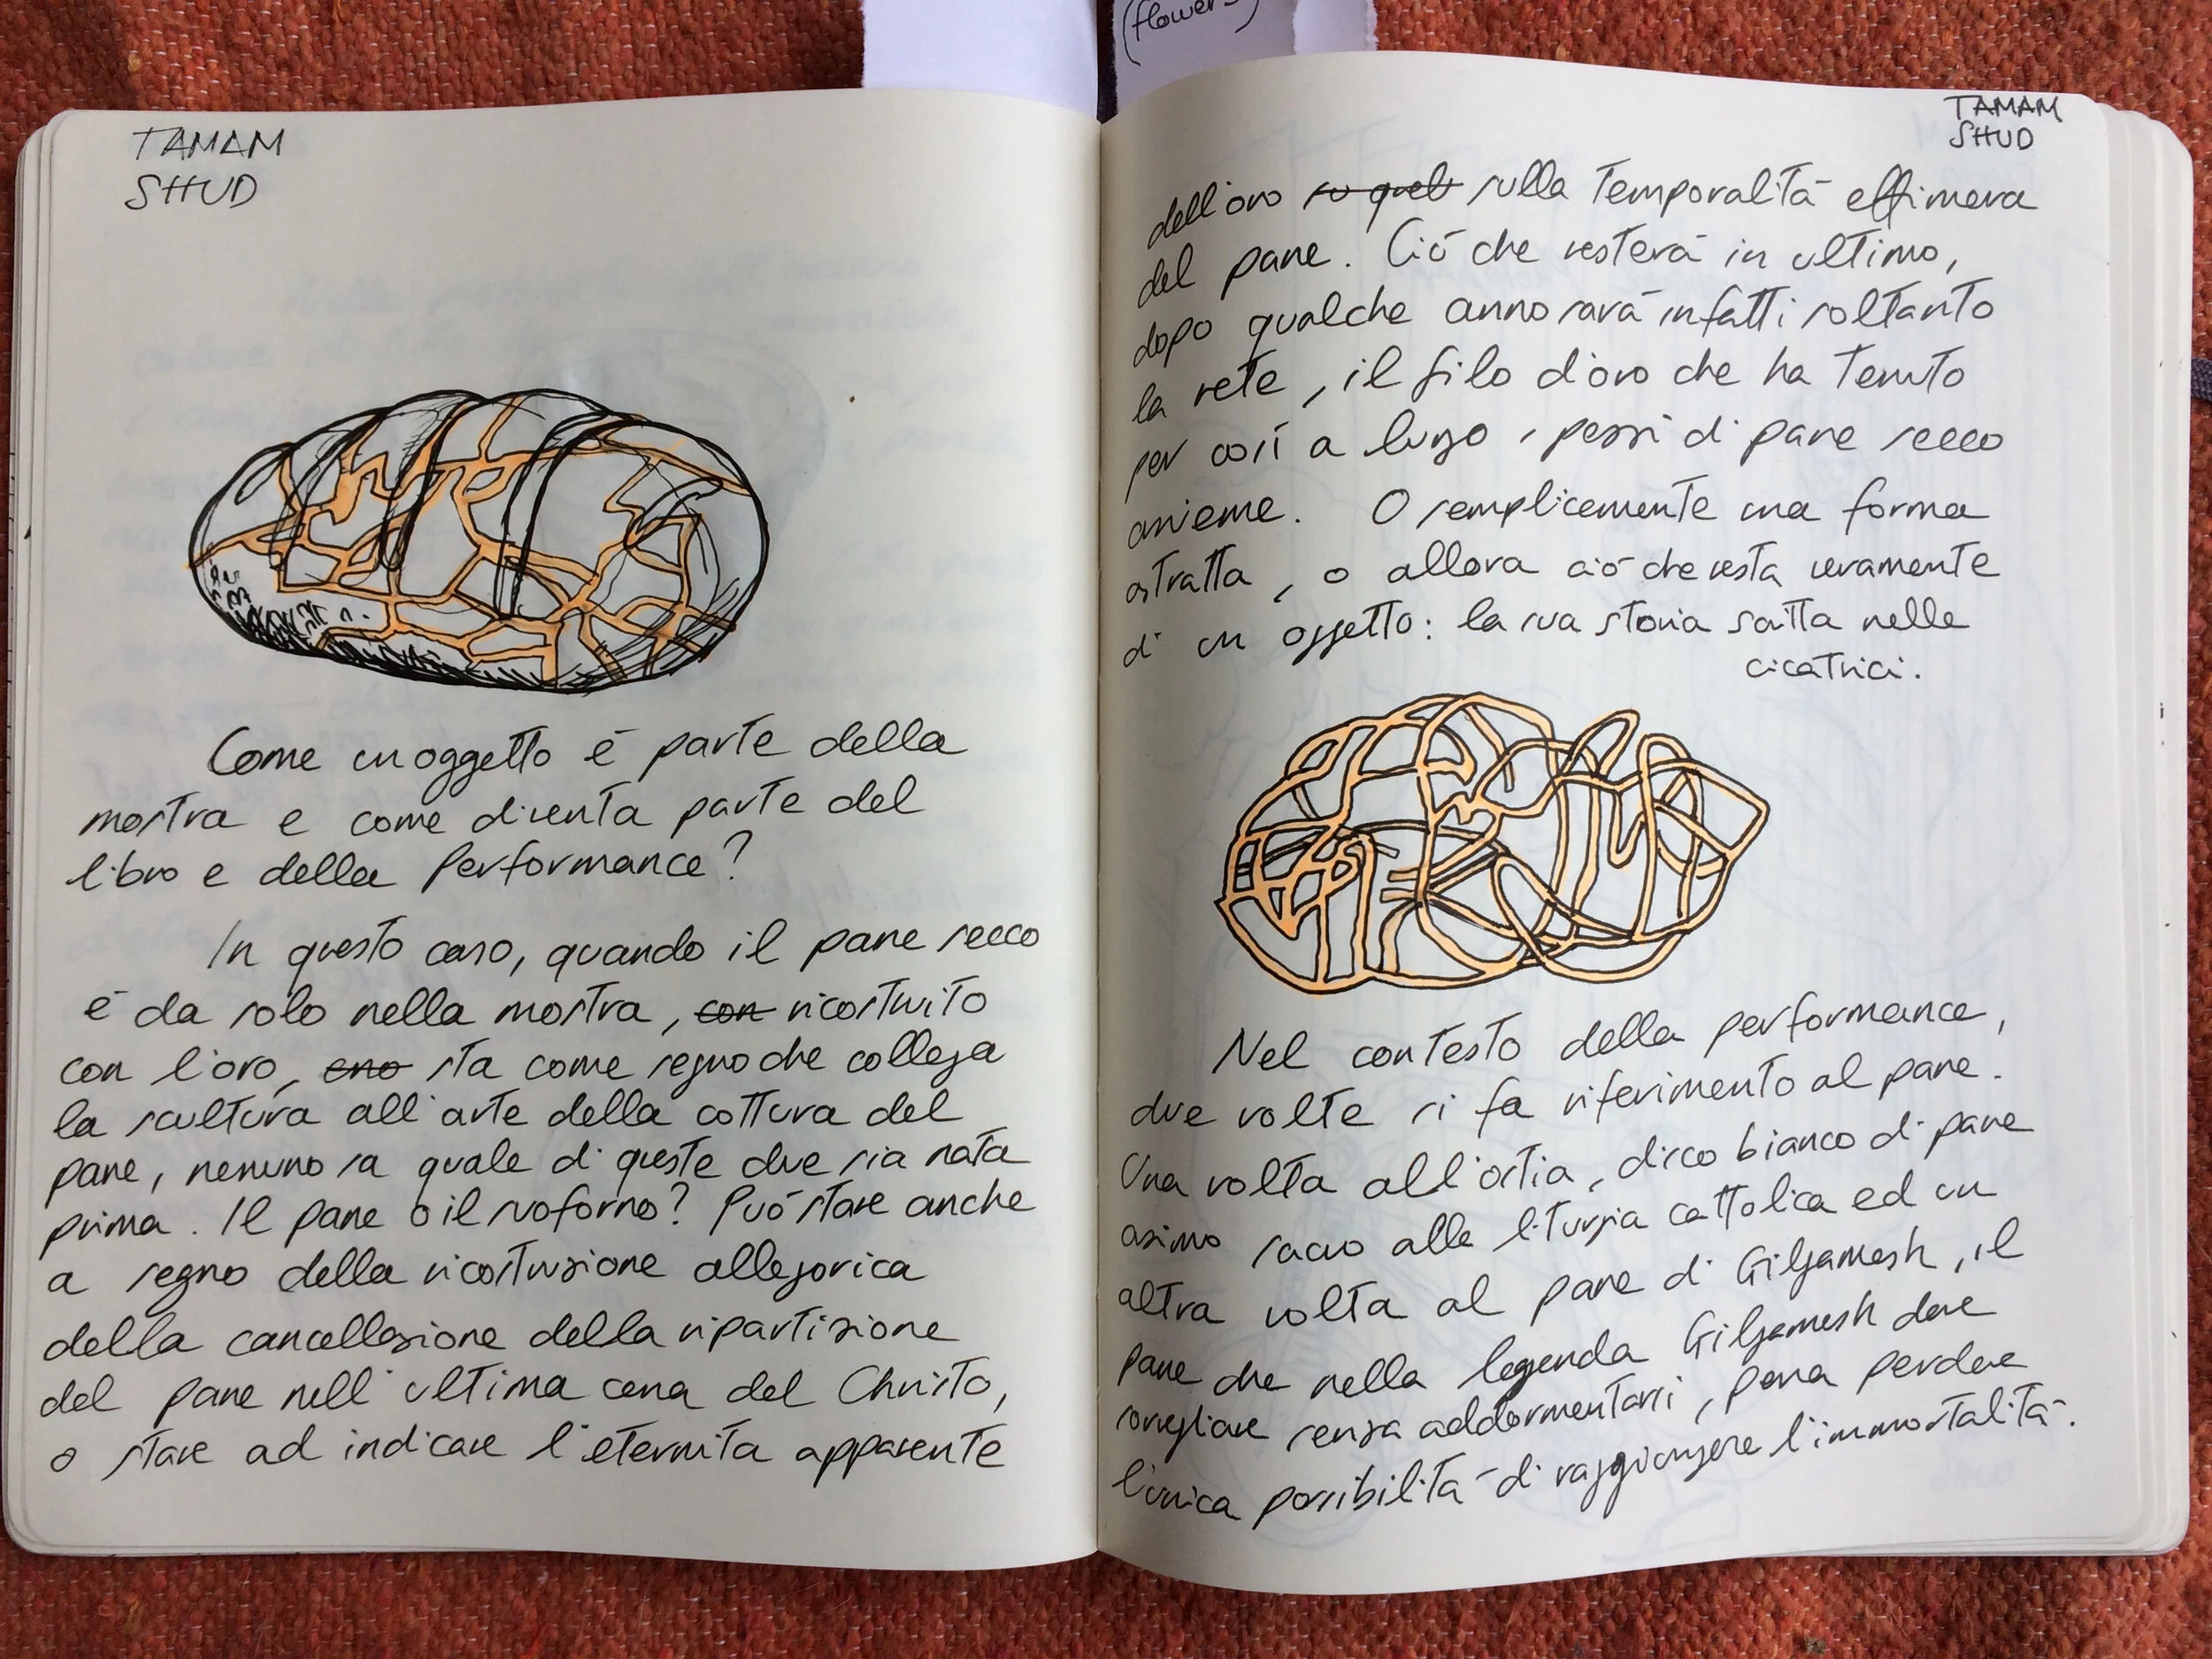 (flowers)
TAMAM
SHUD
Come un oggetto é parte della
mostra e come diventa parte del
libro e della Performance?
In questo caso, quando il pane secco
é da solo nella mostra, con ricostruito
con l'oro, eno sta come segno che collega
la scultura all'arte della cottura del
pane, nessuno sa quale di queste due sia nata
prima. Il pane o il suo forno? Puó stare anche
a segno della ricostruzione allegorica
della cancellazione della ripartizione
del pane nell'ultima cena del Christo,
o stare ad indicare l'eternita apparente
TAMAM
SHUD
dell'oro su quel sulla temporalitá effimera
del pane. Ció che resterá in ultimo,
dopo qualche anno sará infatti soltanto
la rete, il filo d'oro che ha tenuto
per cosí a lungo i pezzi di pane secco
assieme. O semplicemente una forma
astratta, o allora ció che resta veramente
di un oggetto: la sua storia scritta nelle
cicatrici.
Nel contesto della performance,
due volte si fa riferimento al pane.
Una volta all'ostia, disco bianco di pane
asimo sacro alla liturgia cattolica ed un
altra volta al pane di Gilgamesh, il
pane che nella leggenda Gilgamesh deve
sorvegliare senza addormentarsi, pena perdere
l'unica possibilitá di raggiungere l'immortalitá.